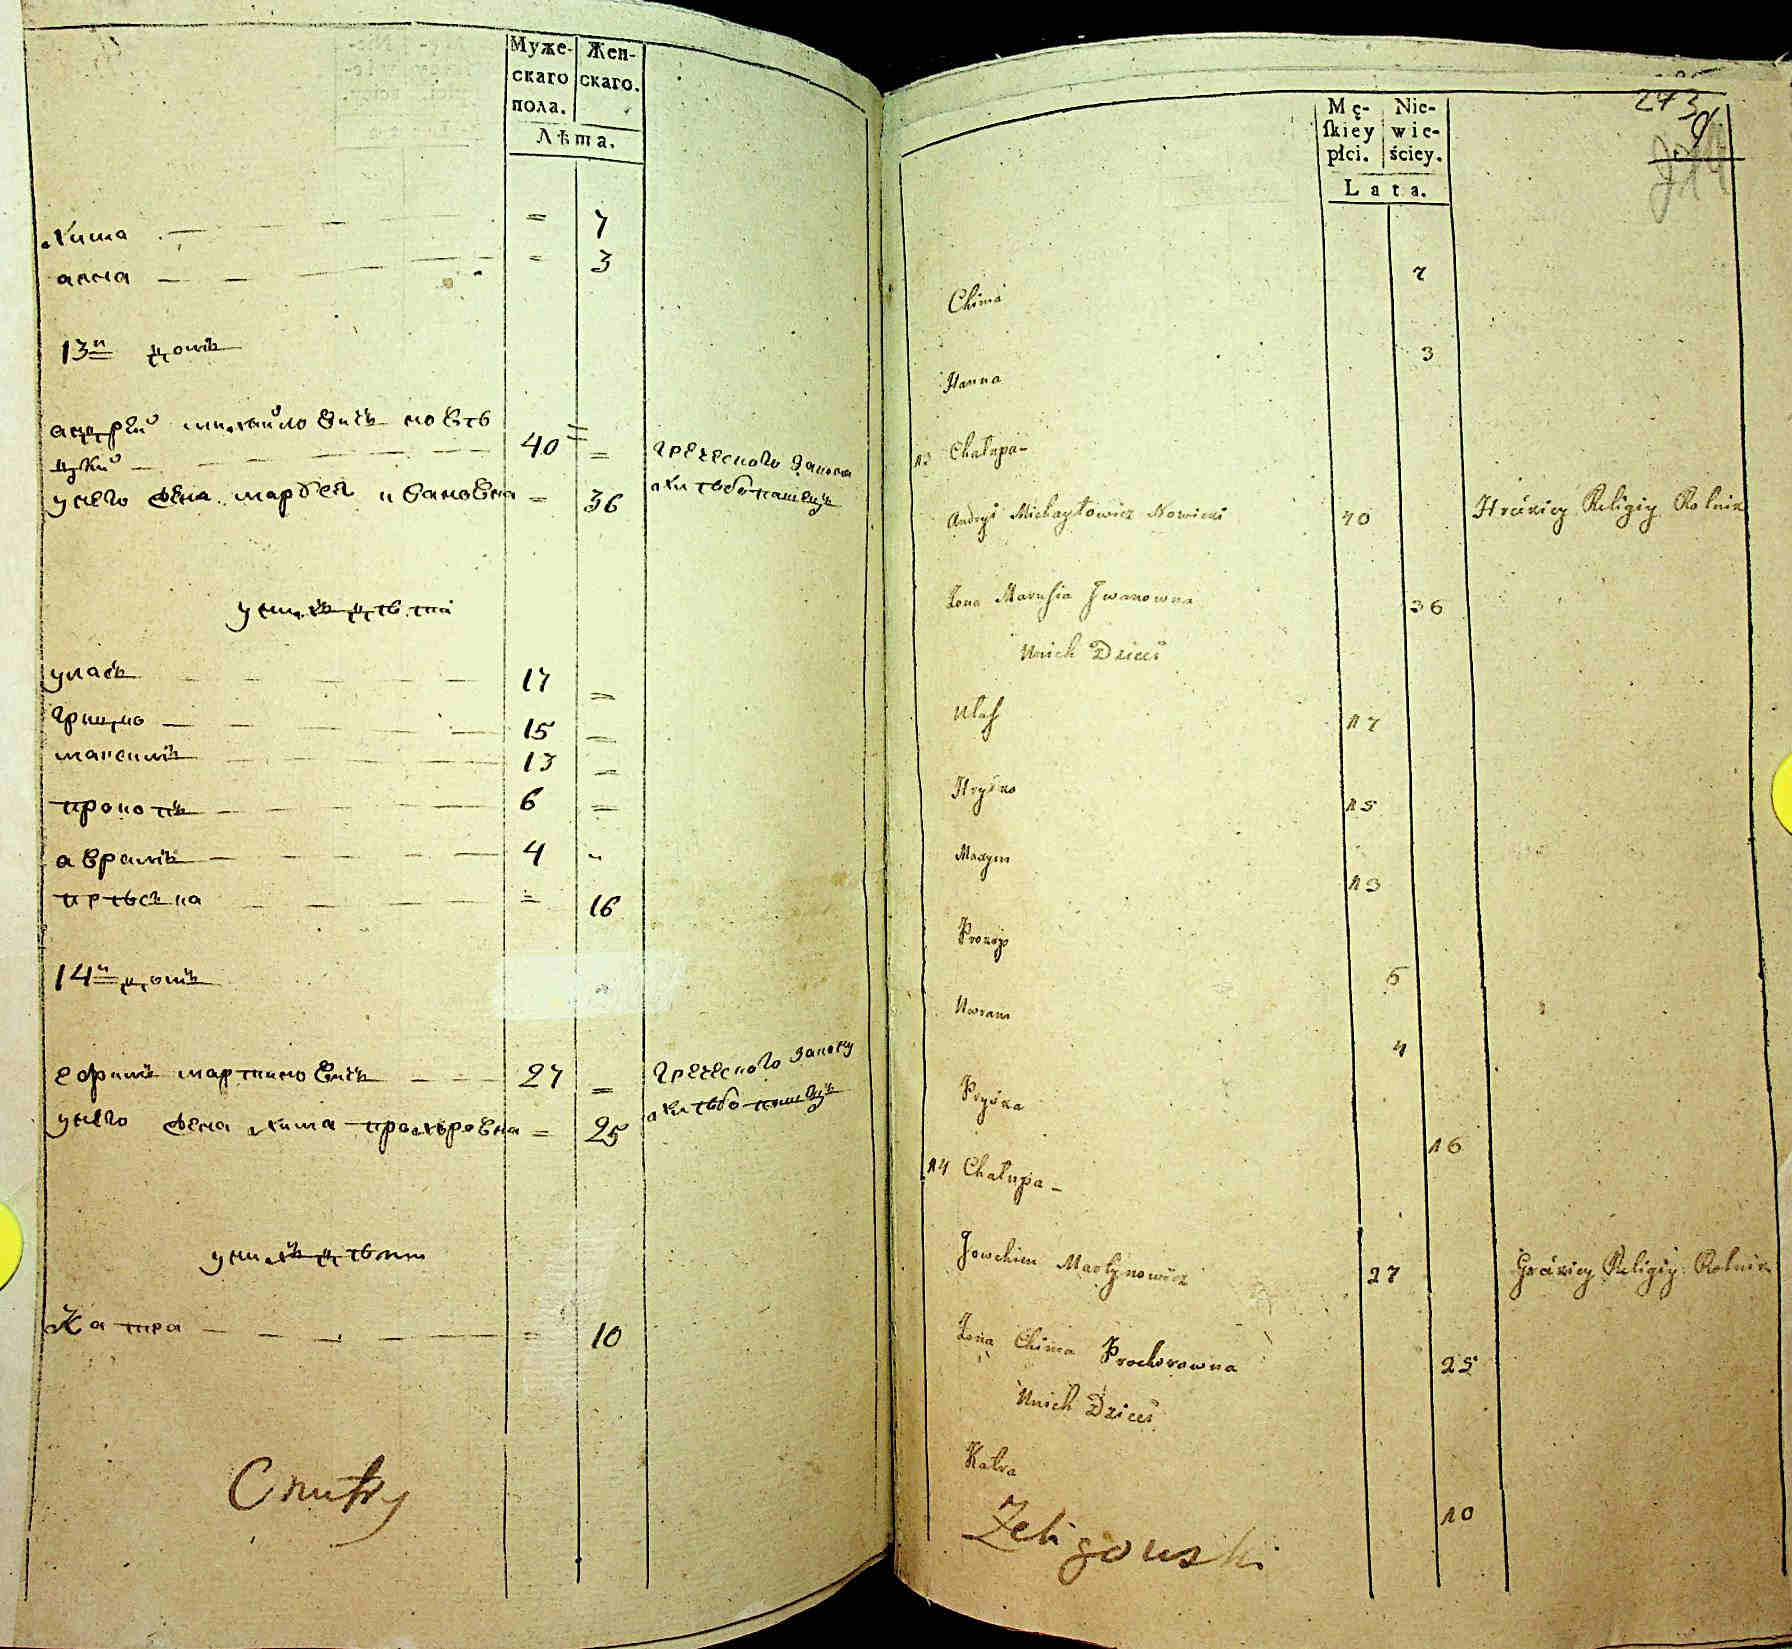 Муже-
скаго
пола.
Жен-
скаго.
Лѣта.
Хима 7
анна 3
13й домъ
андрѣй михайловичъ новѣ
цкий 40
греческого закона
хлѣбопашецъ
унего жена марꙋся ивановна 36
унихъ дѣти
уласъ 17
грицко 15
максимъ 13
прокопъ 6
авраамъ 4
прѣська 16
14й домъ
ефимъ мартиновичъ 27
греческого закону
хлѣбопашецъ
унего жена хима прохоровна 25
унихъ дѣти
Катра 10
273
Mę-
ſkiey
płci.
Nie-
wie-
ściey.
Lata.
Chima 7
Hanna 3
13 Chałupa-
Andryi Michayłowicz Nowicki 40 Hrückiey Religiy Rolnik
Żona Marusia Jwanowna 36
Unich Dzieci
Ulas 17
Hryćko 15
Maxym 13
Prokop 6
Awram 4
Pryśka 16
14 Chałupa-
Jowchim Martynowicz 27 Greckiey Religiy Rolnik
Żona Chima Prochorowna 25
Unich Dzieci
Katra 10
Zeligowski